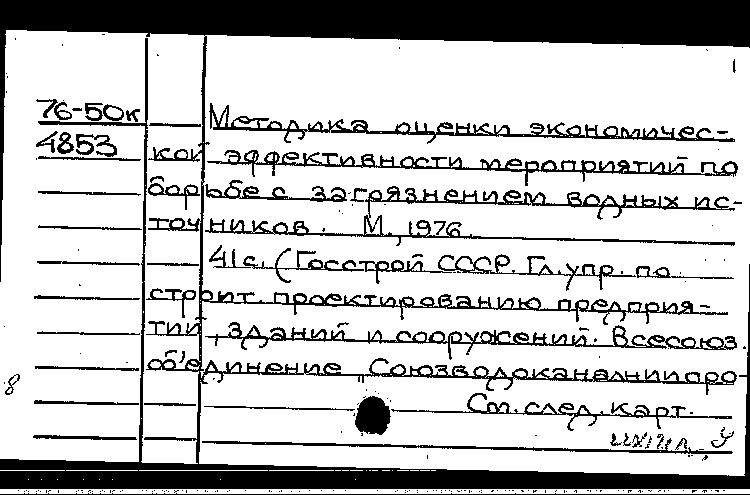 1
76-50к Методика оценки экономичес-
4853 кой эффективности мероприятий по
борьбе с загрязнением водных ис-
точников. М., 1976.
41 с. (Госстрой СССР. Гл. упр. по
строит. проектированию предприя-
тий, зданий и сооружений. Всесоюз.
об'единение „Союзводоканалниипро-
8 См. след. карт.